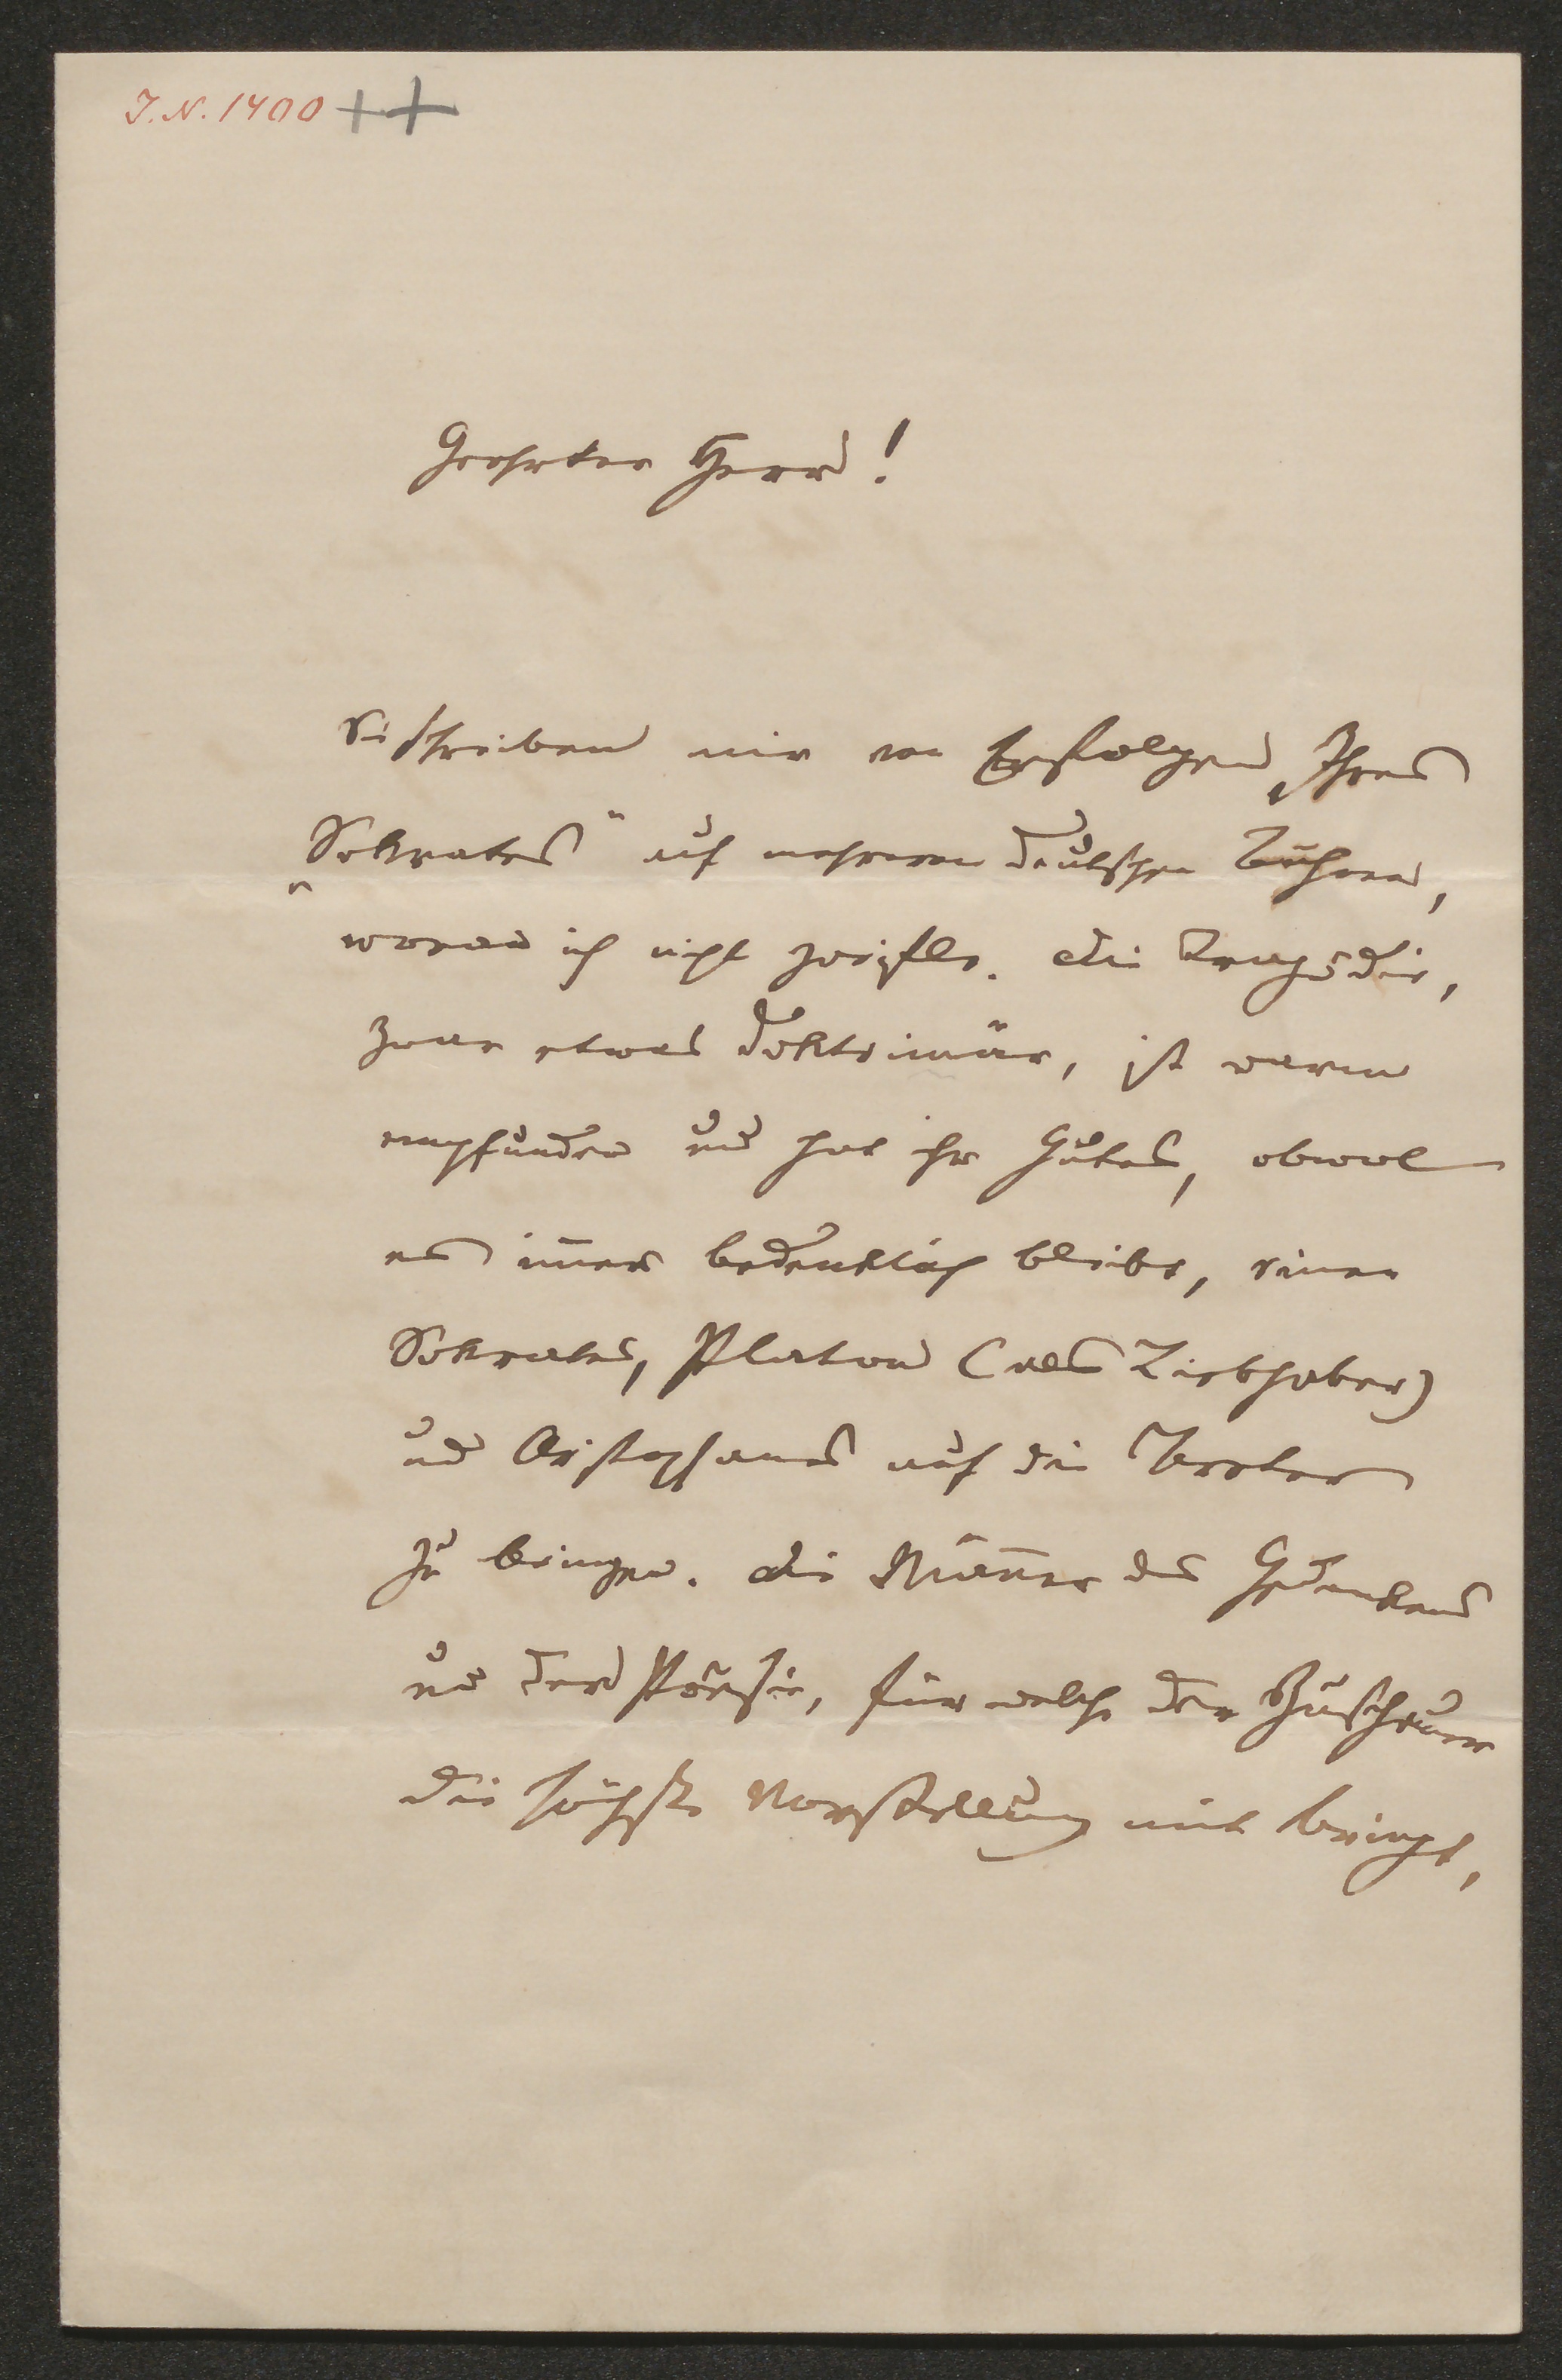 J.N. 1400 ++
Geehrter Herr!
Sie schreiben mir von Erfolgen Ihres
„Sokrates“ auf mehreren deutschen Bühnen,
woran ich nicht zweifle. Die Tragödie,
zwar etwas doktrinär, ist warm
empfunden und hat ihr Gutes, obwol
es im̅er bedenklich bleibt, einen
Sokrates, Platon (als Liebhaber)
und Aristophanes auf die Bretter
zu bringen. Die Män̅er des Gedankens
und der Poësie, für welche der Zuschauer
die höchste Vorstellung mit bringt,